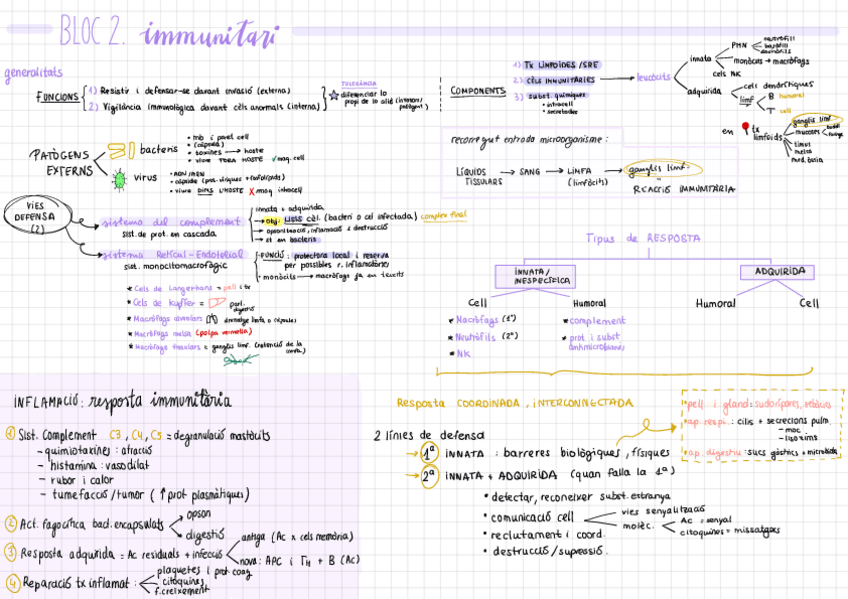 BLOC 2. immunitari
generalitats
FUNCIONS
1) Resistir i defensar-se davant invasió (externa)
2) Vigilància immunològica davant cèls anormals (interna)
TOLERÀNCIA
diferenciar lo
propi de lo aliè
COMPONENTS
1) Tx LIMFOIDES /SRE
2) CÈLS IMMUNITÀRIES
3) subst. químiques
• intracel
• secretades
leucòcits
innata
PMN
neutròfil
basòfil
monòcits → macròfags
cels NK
adquirida
cels dendrítiques
limf
B humoral
T cel
en tx
limfoides
ganglis limf
mucoses
timus
melsa
med. òssia
PATÒGENS
EXTERNS
bacteris
• mb i paret cel
• (càpsula)
• toxines → hoste
• viure FORA HOSTE ✓ maq. cel
virus
• ADN /ARN
• viure DINS L'HOSTE X maq intracel
recorregut entrada microorganisme:
LÍQUIDS
TISSULARS
→ SANG → LIMFA
(limfòcits)
→ ganglis limf.
REACCIÓ IMMUNITÀRIA
VIES
DEFENSA
(2)
sistema del complement
sist. de prot. en cascada
innata i adquirida
obj. LISIS cèl. (bacteri o cel infectada) complex final
opsonització, inflamació i destrucció
sistema Retícul-Endotelial
sist. monocitomacrofàgic
FUNCIÓ: protectora local i reserva
per possibles r. inflamatòries
• monòcits → macròfags ja en teixits
* Cels de Langerhans = pell i tx
* Cels de Kupffer =
part.
digestiu
* Macròfags alveolars
drenatge limfa o càpsules
* Macròfags melsa (polpa vermella)
* Macròfags tissulars = ganglis limf. (retenció de la
limfa)
Tipus de RESPOSTA
INNATA/
INESPECÍFICA
ADQUIRIDA
Cell
Humoral
Humoral
Cell
* Macròfags (1º)
* Neutròfils (2º)
* NK
* complement
* prot i subst
antimicrobianes
INFLAMACIÓ: resposta immunitària
① Sist. Complement C3, C4, C5 = degranulació mastòcits
- quimiotaxines: atracció
- histamina: vasodilat
- rubor i calor
- tumefacció/tumor (↑prot plasmàtiques)
② Act. fagocítica bact. encapsulats
opson
digestió
③ Resposta adquirida = Ac residuals + infecció
antiga (Ac x cels memòria)
nova: APC i TH + B (Ac)
④ Reparació tx inflamat:
plaquetes i prot. coag
citoquines
f. creixement
Resposta COORDINADA, INTERCONNECTADA
2 línies de defensa
→ 1ª INNATA : barreres biològiques, físiques
→ 2ª INNATA + ADQUIRIDA (quan falla la 1ª)
• detectar, reconeixer subst. estranya
• comunicació cell
vies senyalització
molèc.
Ac = senyal
citoquines = missatges
• reclutament i coord.
• destrucció/supressió.
* pell i gland: sudorípares, sebàcies
* ap. respi.: cilis + secrecions pulm.
- moc
- lisozims
* ap. digestiu: sucs gàstrics + microbiota